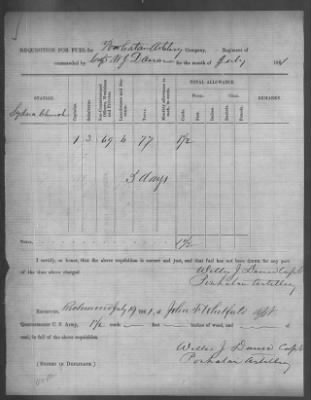 REQUISITION FOR FUEL for Powhatan Artillery Company, Regiment of
commanded by Capt W J Dance for the month of July 186
TOTAL ALLOWANCE.
STATION.
Captains.
Subalterns.
Non-Commissioned Officers, Musicians and Privates.
Total.
Monthly allowance to each, in cords.
Wood.
Coal.
REMARKS.
Cords.
Feet.
Inches.
Church
1 3 69 77 1½
3 days
TOTAL, 1½
I certify, on honor, that the above requisition is correct and just, and that fuel has not been drawn for any part
of the time above charged.
Willis J Dance Capt
Powhatan Artillery
RECEIVED, Richmond July 19 1861, of John
Quartermaster C. S. Army, 1½ cords feet inches of wood, and
coal, in full of the above requisition.
Willis J Dance Capt
Powhatan Artillery
(SIGNED IN DUPLICATE.)